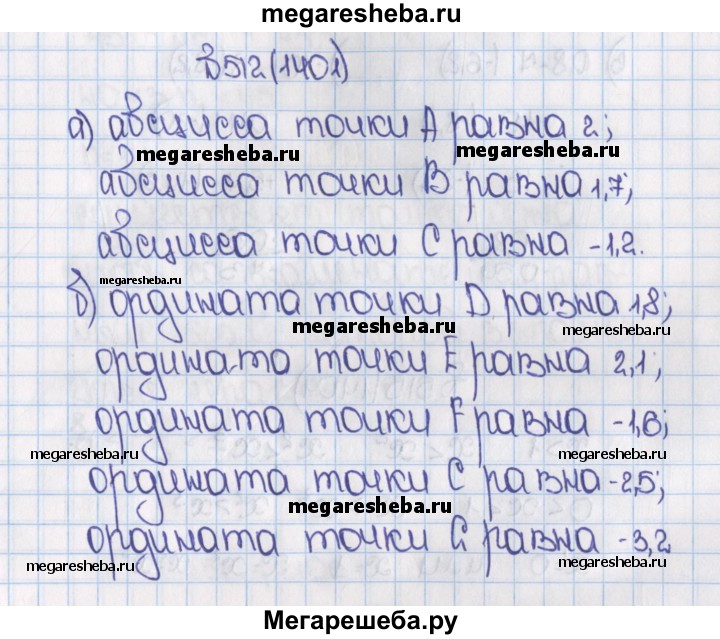 megaresheba.ru
В512(1401)
а) абсцисса точки А равна 2;
megaresheba.ru megaresheba.ru
абсцисса точки В равна 1,7;
абсцисса точки С равна -1,2.
megaresheba.ru
б) ордината точки D равна 1,8;
megaresheba.ru megaresheba.ru
ордината точки Е равна 2,1;
ордината точки F равна -1,6;
megaresheba.ru megaresheba.ru
ордината точки С равна -2,5;
megaresheba.ru
ордината точки G равна -3,2
megaresheba.ru megaresheba.ru
Мегарешеба.ру